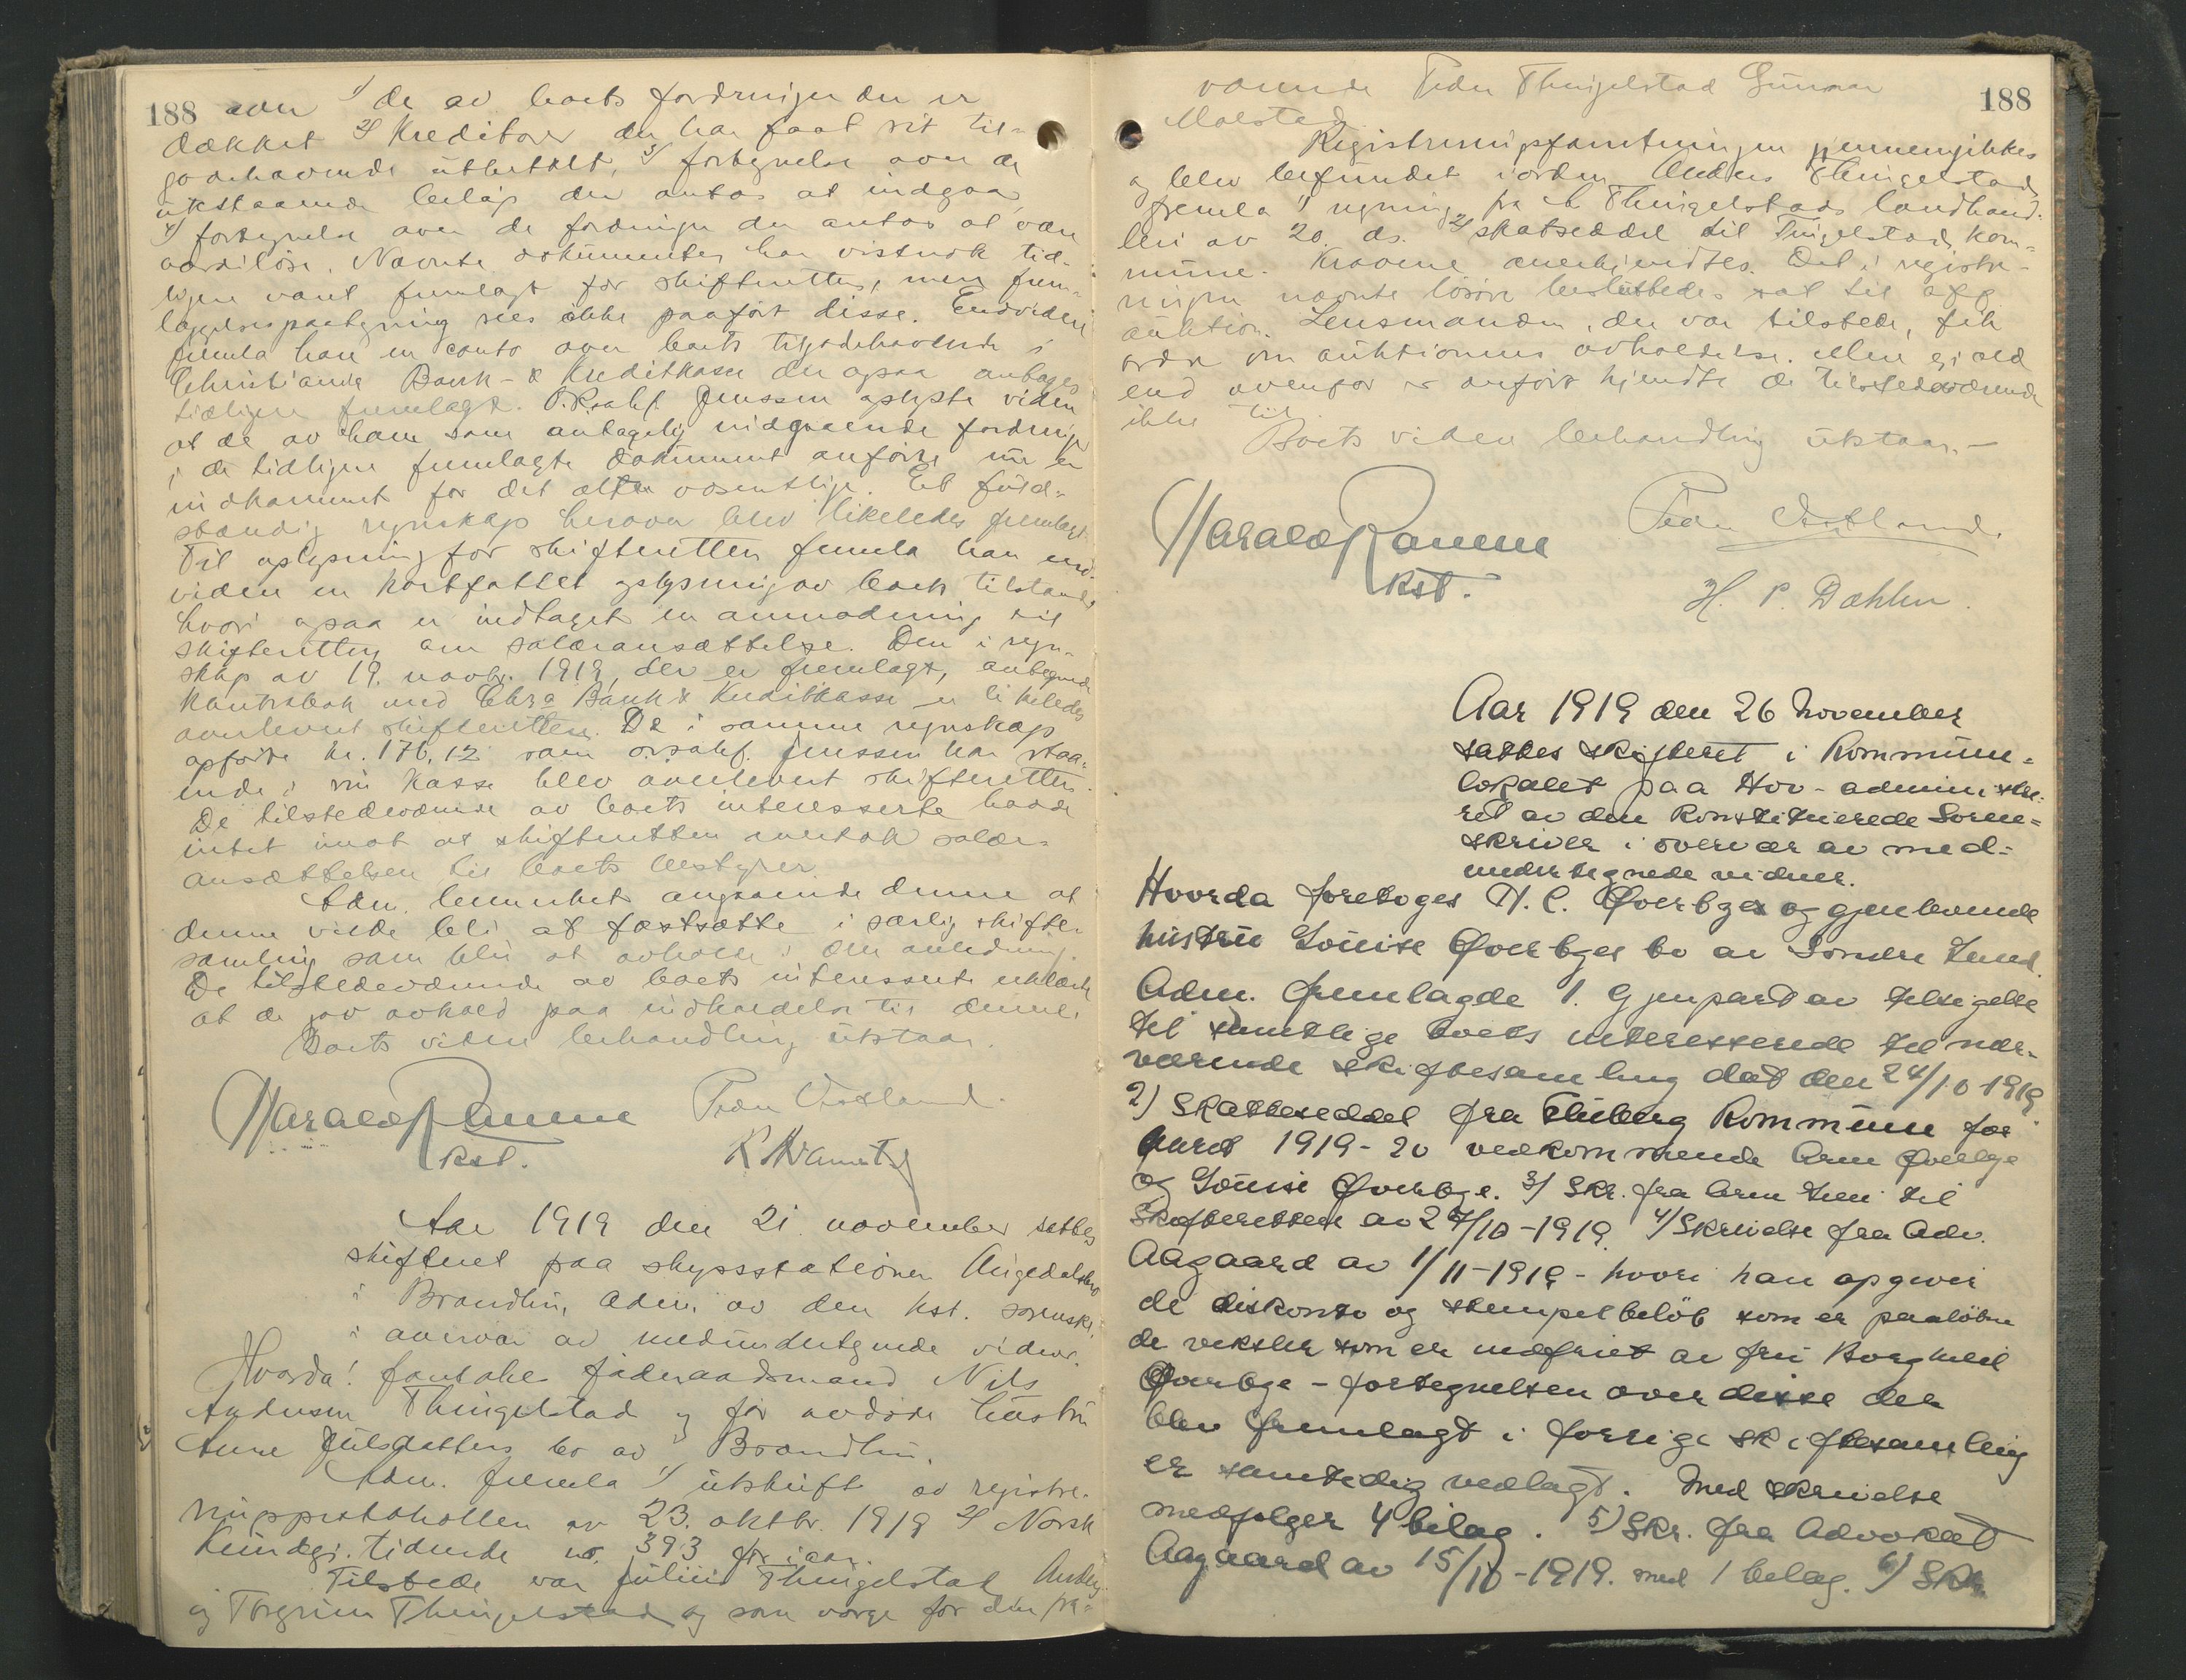 188 over 1/ de av boets fordringer der er
dækket 2/ Kreditorer der har faat sit til-
godehavende utbetalt, 3/ fortegnelse over de
utestaaende beløp der antas at indgaa,
4/ fortegnelse over de fordringer der antas at være
værdiløse. Nævnte dokumenter har vistnok tid-
ligere været fremlagt for skifteretten, men frem-
læggelsespaategning sees ikke paaført disse. Endvidere
fremla han en conto over boets tilgodehavende i
Christiania Bank- & Kreditkasse der ogsaa antages
tidligere fremlagt. O.R.sakf. Jenssen oplyste videre
at de av ham som antagelig indgaaende fordringer
i de tidligere fremlagte dokument anførte nu er
indkommet for det alt væsentlige. Et fuld-
stændig regnskap herover blev likeledes fremlagt.
Til oplysning for skifteretten fremla han end-
videre en kortfattet oplysning av boets tilstand,
hvori ogsaa er indtaget en anmodning til
skifteretten om salæransættelse. Den i regn-
skap av 19. novbr. 1919, der er fremlagt, antegnede
Kontrabok med Chra Bank & Kreditkasse er likeledes
overlevert skifteretten. De i samme regnskap
opførte kr. 170,12 som o.r.sakf. Jenssen har staa-
ende i sin kasse blev overlevert skifteretten.
De tilstedeværende av boets interesserte havde
intet imot at skifteretten foretok salær-
ansættelsen til boets bestyrer.
Adm. bemerket angaaende denne at
denne vilde bli at fastsætte i særlig skifte-
samling som blir at avholde i den anledning.
De tilstedeværende av boets interesserte erklærte
at de gav avkald paa indkaldelse til denne.
Boets videre behandling utstaar.
Harald Ramm
kst.
Peder Østland.
Aar 1919 den 21. november sattes
skifteret paa skysstationen Augedalsbro
i Brandbu, adm. av den kst. sorenskr.
i overvær av medundertegnede vidner.
Hvorda! foretokes føderaadsmand Nils
Andersen Thingelstad og før avdøde hustru
Anne Julsdatters bo av Brandbu.
Adm. fremla 1/ utskrift av registre-
ringsprotokollen av 23. oktbr. 1919 2/ Norsk
Kundgj. tidende no. 393 for iaar.
Tilstede var Julius Thingelstad, Anders
og Torgrim Thingelstad og som verge for den fra-
188
værende Peder Thingelstad Gunnar
Molstad.
Registreringsforretningen gjennemgikkes
og blev befundet i orden. Anders Thingelstad
fremla 1/ regning fra A. Thingelstads landhand-
leri av 20. ds. 2/ skatseddel til Tingelstad kom-
mune. Kravene anerkjendtes. Det i registre-
ringen nævnte løsøre besluttedes sat til off.
auktion. Lensmanden, der var tilstede, fik
ordre om auktionens avholdelse. Mere gjæld
end ovenfor er anført kjendte de tilstedeværende
ikke til.
Boets videre behandling utstaar. -
Harald Ramm
kst.
Peder Østland.
H. P. Dæhlen.
Aar 1919 den 26 November
sattes skifteret i Kommune-
lokalet paa Hov - administre-
ret av den Konstituerede Soren-
skriver i overvær av med-
undertegnede vidner.
Hvorda foretoges H. C. Øverbyes og gjenlevende
hustru Louise Øverbyes bo av Søndre Land.
Adm. fremlagde 1. Gjenpart av tilsigelse
til samtlige boets interesserede til nær-
værende skiftesamling dat den 24/10 1919
2) Skatteseddel fra Fluberg Kommune for
aaret 1919-20 vedkommende Arne Øverbye
og Louise Øverbye. 3/ Skr. fra Arne Lien til
Skifteretten av 27/10-1919. 4/ Skrivelse fra Adv.
Aagaard av 1/11-1919 - hvori han opgiver
de diskonto og stempelbeløb som er paaløbne
de veksler som er indfriet av fru Borghild
Øverbye - fortegnelsen over disse der
blev fremlagt i forrige skiftesamling
er samtidig vedlagt. Med skrivelse
medfølger 4 bilag. 5) Skr. fra Advokat
Aagaard av 15/10-1919. med 1 bilag. 6) Skr.